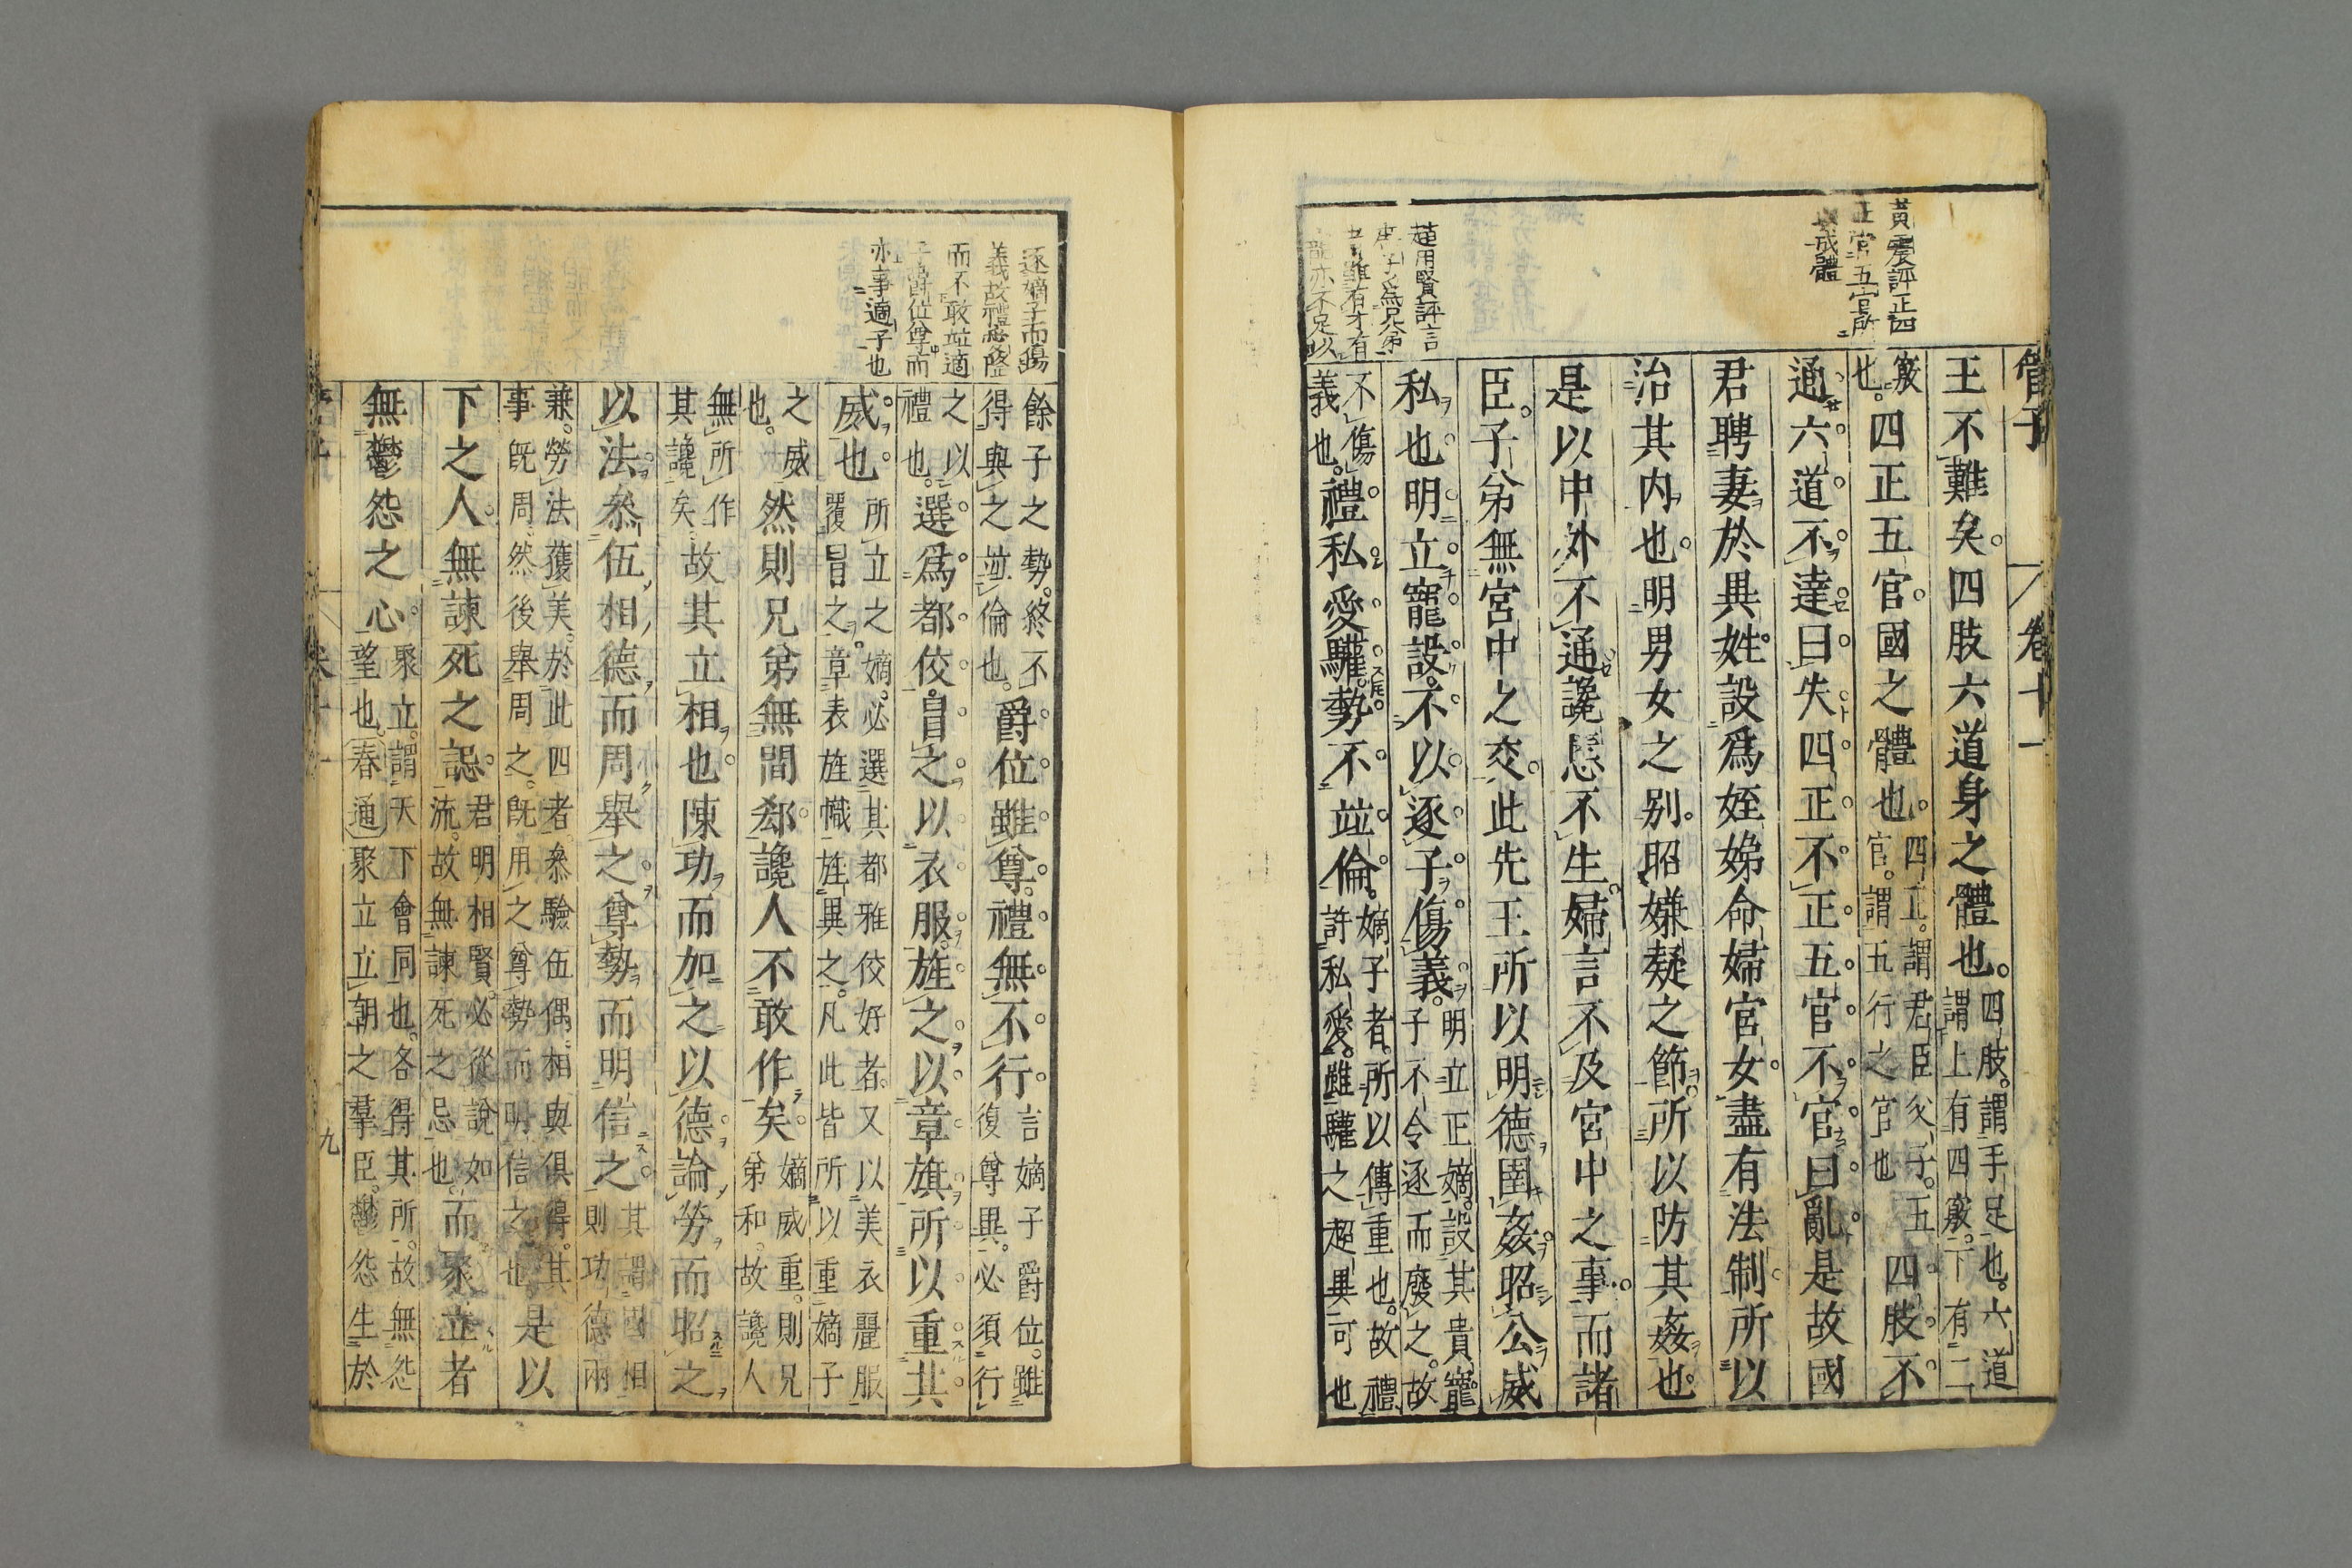 管子
卷十一
黃震評正四
正官五官所
成體
王不難矣。四肢六道身之體也。四肢。謂手足也。六道
謂上有四竅。下有二
竅
也。四正五官。國之體也。四正。謂君臣父子。五
官。謂五行之官也四肢不
通。六道不達曰失。四正不正五官不官曰亂是故國
君聘妻於異姓。設爲姪娣命婦官女。盡有法制所以
治其内也。明男女之别。昭嫌疑之節。所以防其姦也。
是以中外不通讒慝不生。婦言不及宮中之事。而諸
臣。子弟無宮中之交。此先王所以明德圉姦昭公威
私也。明立寵設。不以逐子傷義。明立正嫡。設其貴寵。
子不令逐而廢之。故
不傷
義也。禮私愛驩。勢不並倫。嫡子者。所以傳重也。故禮
許私愛。雖驩之超異可也
趙用賢評言
有才有
亦不足以
逐嫡子而傷
義故禮
而不敢並適
爵位尊而
亦事適子也
餘子之勢。終不
得與之並倫也。爵位雖尊。禮無不行。言嫡子爵位。雖
復尊異。必須行
之以
禮也。選爲都佼。冒之以衣服。旌之以章旗。所以重其
威也。所立之嫡。必選其都雅佼好者。又以美衣麗服
覆冒之。章表旌幟旌異之。凡此皆所以重嫡子
之威
也。然則兄弟無間郄。讒人不敢作矣。嫡威重。則兄
弟和。故讒人
無所作
其讒矣故其立相也。陳功而加之以德。論勞而昭之
以法。叅伍相德而周舉之。尊勢而明信之。其謂國相
則功德兩
兼。勞法獲美。於此四者。叅驗伍偶。相與俱得。其
事旣周。然後舉周之。旣用之尊勢而明信之也是以
下之人。無諫死之䛯。君明相賢。必從說如
流。故無諫死之忌也。而聚立者
無鬱怨之心。聚立。謂天下會同也。各得其所。故無怨
望也。春通聚立立朝之羣臣。鬱怨生於
九